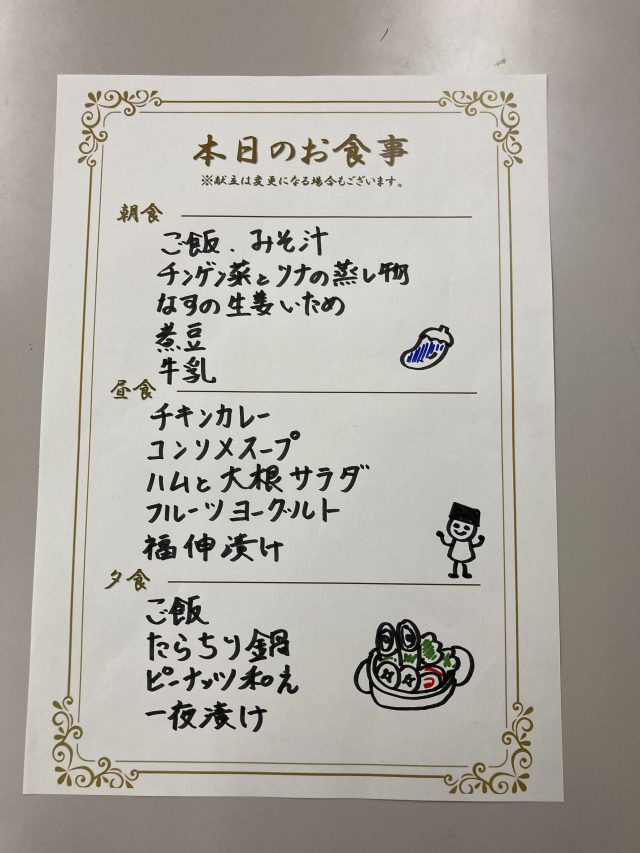 本日のお食事
※献立は変更になる場合もございます。
朝食
ご飯、みそ汁
チンゲン菜とツナの蒸し物
なすの生姜いため
煮豆
牛乳
昼食
チキンカレー
コンソメスープ
ハムと大根サラダ
フルーツヨーグルト
福伸漬け
夕食
ご飯
たらちり鍋
ピーナッツ和え
一夜漬け